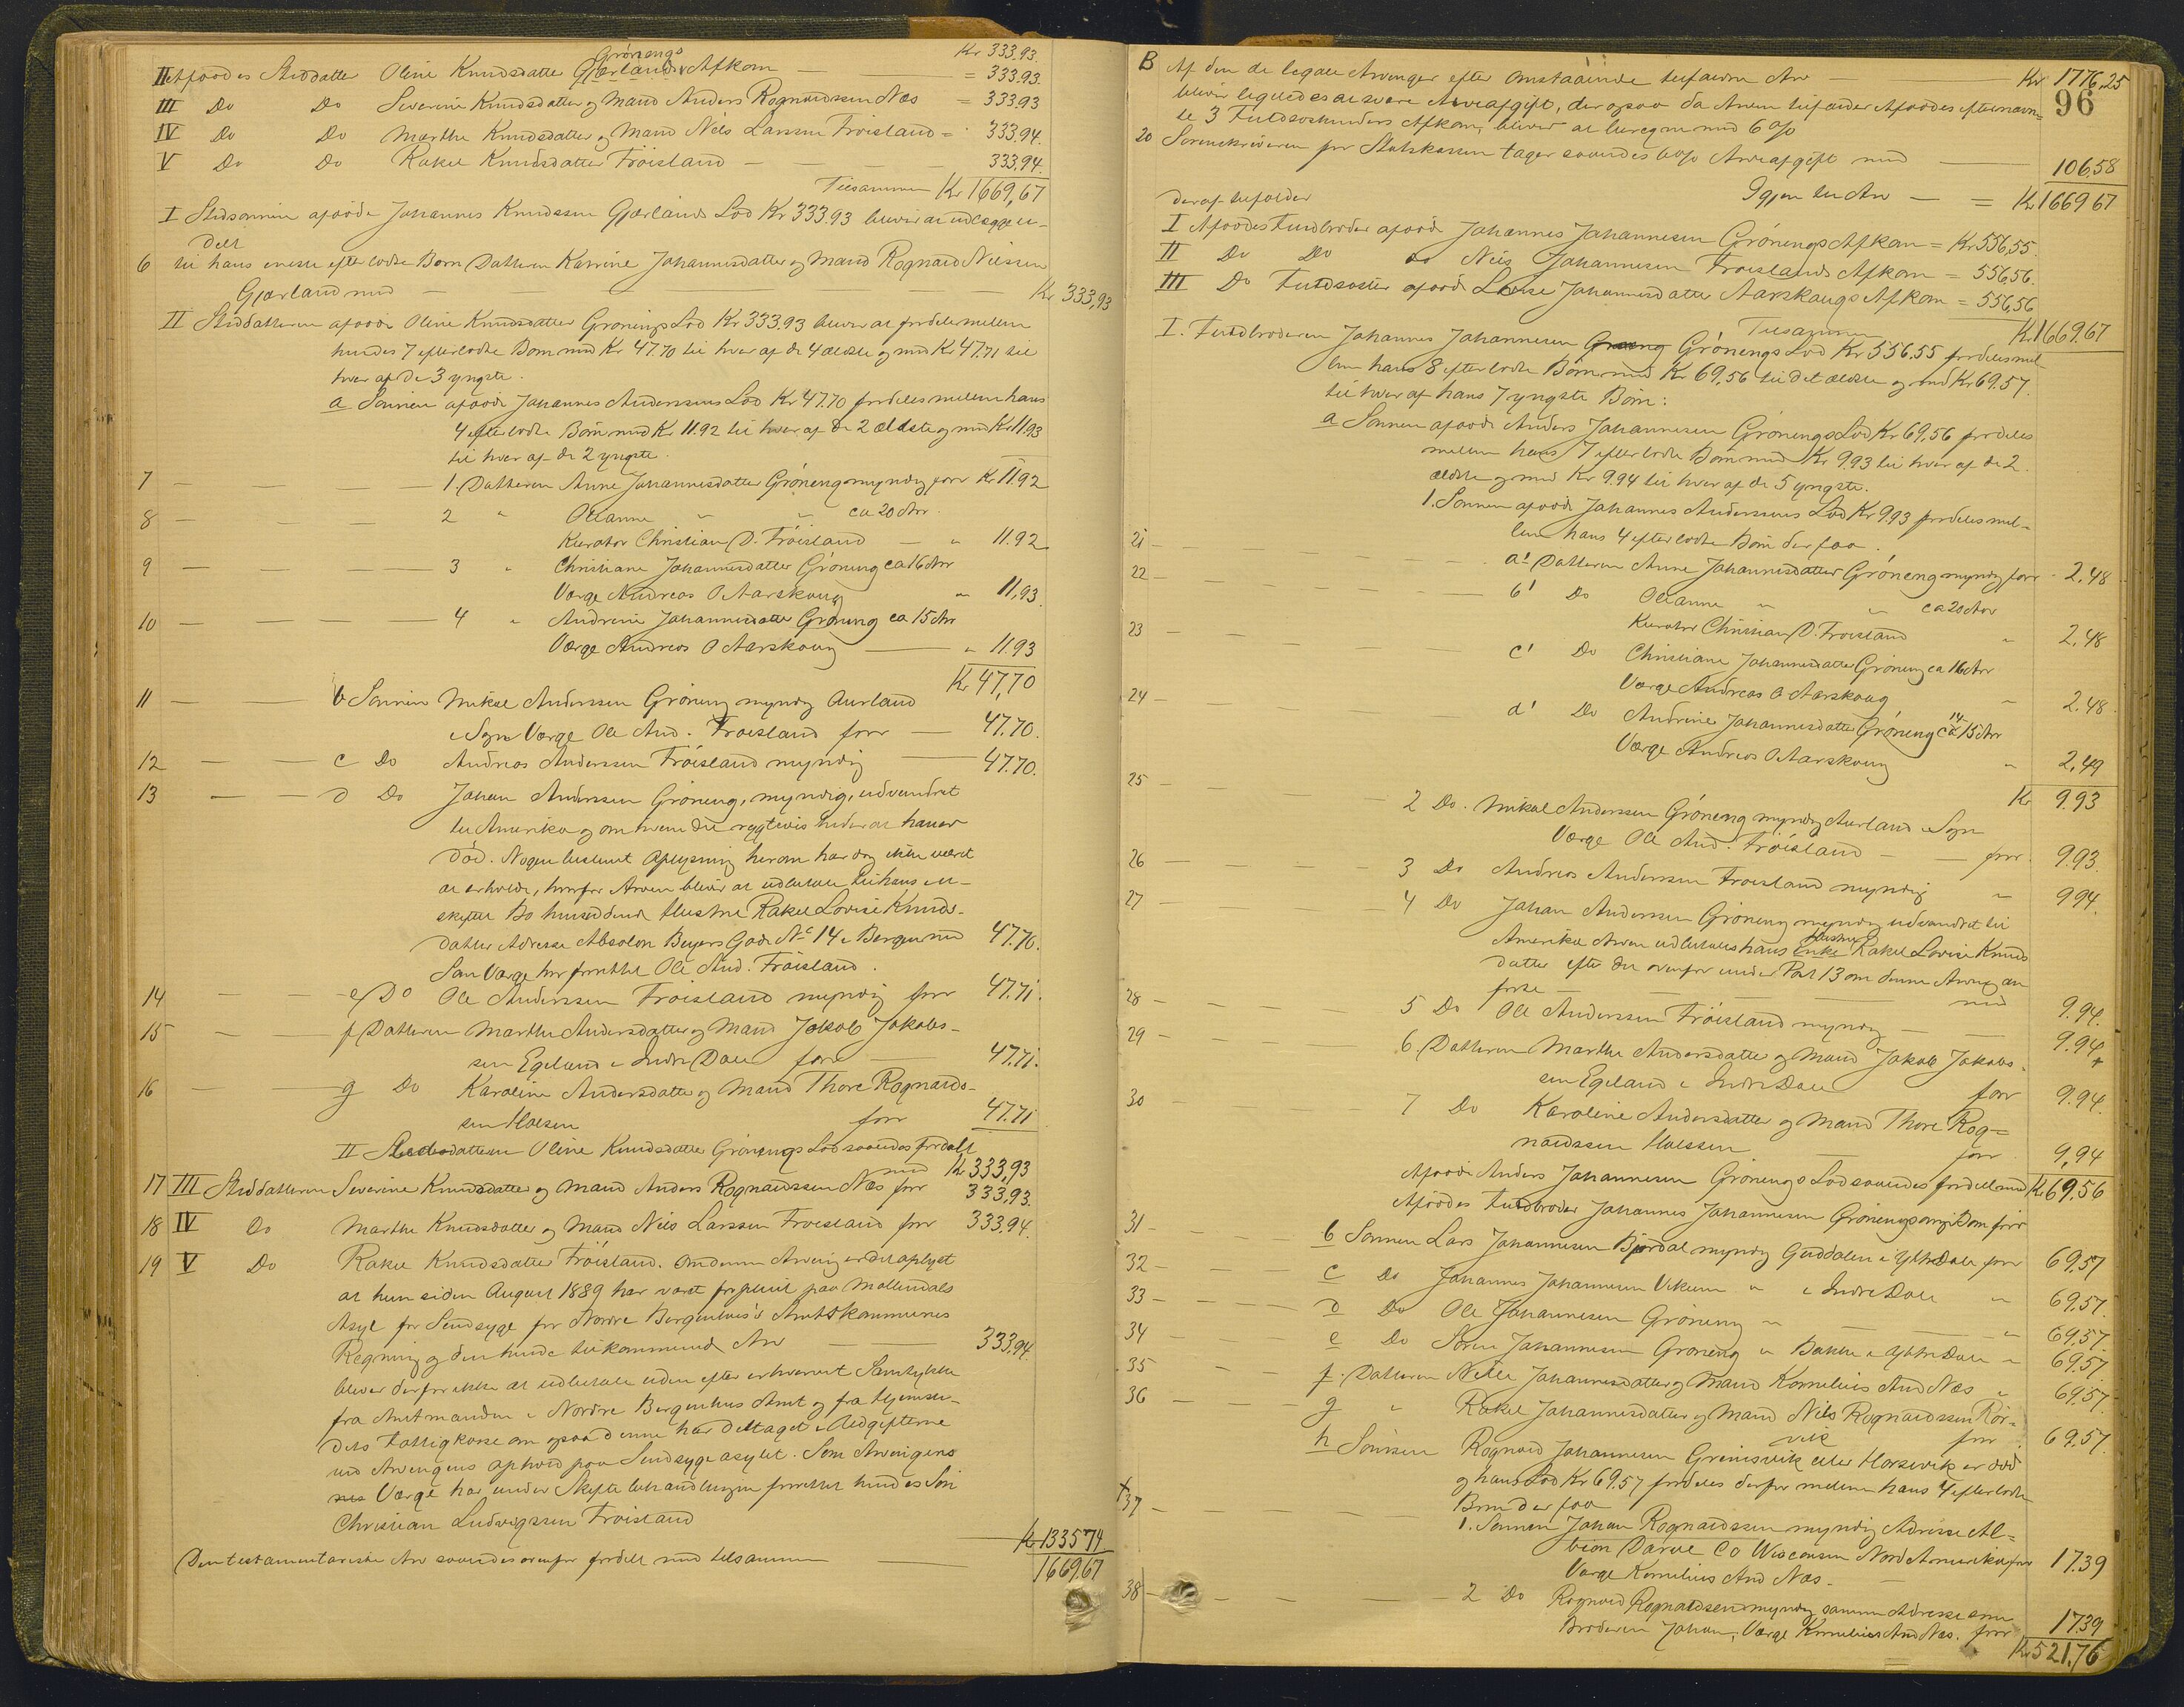 Kr 333.93.
Grönengs
II Afdödes Steddatter Oline Knudsdatter Gjærlands Afkom — = 333.93.
III Do Do Severine Knudsdatter og Mand Anders Rognardssen Næs = 333.93
IV Do Do Marthe Knudsdatter og Mand Nils Larssen Fröisland = 333.94.
V Do Do Rakel Knudsdatter Fröisland — 333.94.
Tilsammen Kr 1669,67
I Stedsönnen afdöde Johannes Knudssen Gjærlands Lod Kr 333.93 bliver at udlægge u-
delt
6 til hans eneste efterlodte Barn Datteren Karine Johannesdatter og Mand Rognald Nilssen
Gjærland med — Kr 333,93
II Steddatteren afdöde Oline Knudsdatter Grönengs Lod Kr 333.93 bliver at fordele mellem
hendes 7 efterlodte Börn med Kr 47.70 til hver af de 4 ældste og med Kr 47.71 til
hver af de 3 yngste.
a Sönnen afdöde Johannes Anderssens Lod Kr 47.70 fordeles mellem hans
4 efterlodte Börn med Kr 11.92 til hver af de 2 ældste og med Kr 11.93
til hver af de 2 yngste.
7 — 1. Datteren Anne Johannesdatter Gröneng myndig for Kr 11.92
8 — 2 " Oleanne " " ca 20 Aar.
Kurator Christian D. Fröisland — " 11.92
9 — 3 " Christiane Johannesdatter Gröneng ca 16 Aar
Værge Andreas O Aarskoug " 11,93.
10 — 4 " Andrine Johannesdatter Gröneng ca 15 Aar
Værge Andreas O Aarskoug — " 11.93
Kr 47,70
11 — b Sönnen Mikal Anderssen Gröneng myndig Aurland
Sogn Værge Ole And. Fröisland for — 47.70.
12 — c Do Andreas Anderssen Fröisland myndig — 47.70.
13 — d Do Johan Anderssen Gröneng, myndig, udvandret
til Amerika og om hvem det rygtevis heder at han er
död. Nogen bestemt Oplysning herom har dog ikke været
at erholde, hvorfor Arven bliver at udbetale til hans u-
skiftet Bo hensiddende Hustru Rakel Lovise Knuds-
datter Adresse Absolon Beyers Gade No 14 i Bergen med 47.70.
Som Værge har fremmet Ole And. Fröisland.
14 — e Do Ole Anderssen Fröisland myndig for 47.71.
15 — f Datteren Marthe Andersdatter og Mand Jakob Jakobs-
sen Egeland i Indre Dale for — 47.71.
16 — g Do Karoline Andersdatter og Mand Thore Rognards-
sen Holsen for 47.71
II Steddatteren Oline Knudsdatter Grönengs Lod saaledes fordelt
med Kr 333,93
17 III Steddatteren Severine Knudsdatter og Mand Anders Rognardssen Næs for 333,93.
18 IV Do Marthe Knudsdatter og Mand Nils Larssen Fröisland for 333.94.
19 V Do Rakel Knudsdatter Fröisland. Om denne Arving er det oplyst
at hun siden August 1889 har været forpleiet paa Möllendals
Asyl for Sindsyge for Nordre Bergenhus's Amtskommunes
Regning og den hende tilkommende Arv — 333,94.
bliver derfor ikke at udbetale uden efter erhvervet Samtykke
fra Amtmanden i Nordre Bergenhus Amt og fra Hjemste-
dets Fattigkasse om ogsaa denne har deltaget i Udgifterne
ved Arvingens ophold paa Sindsygeasylet. Som Arvingens
Værge har under Skiftebehandlingen fremmet hendes Sön
Christian Ludvigssen Fröisland
— Kr 1335.74
Den testamentariske Arv saaledes ovenfor fordelt med tilsammen — 1669.67
B Af den de legale Arvinger efter Omstaaende tilfaldne Arv — Kr 1776,25
96
bliver ligeledes at svare Arveafgift, der ogsaa da Arven tilfalder Afdödes efternævn=
te 3 Fuldsöskendes Afkom, bliver at beregne med 6 %
20 Sorenskriveren for Statskassen tager saaledes 6 % Arveafgift med — 106.58
Igjen til Arv — = Kr 1669 67
deraf tilfalder
I Afdödes Fuldbroder afdöde Johannes Johannesen Grönengs Afkom = Kr 556,55.
II Do Do do Nils Johannesen Fröislands Afkom = 556,56.
III Do Fuldsöster afdöde Louise Johannesdatter Aarskougs Afkom = 556,56
Tilsammen Kr 1669.67
I. Fuldbroderen Johannes Johannesen Grönengs Lod Kr 556.55 fordeles mel-
lem hans 8 efterlodte Börn med Kr 69,56 til det ældste og med Kr 69.57.
til hver af hans 7 yngste Börn:
a Sönnen afdöde Anders Johannesen Grönengs Lod Kr 69,56 fordeles
mellem hans 7 efterlodte Börn med Kr 9.93 til hver af de 2
ældste og med Kr 9.94 til hver af de 5 yngste.
1. Sönnen afdöde Johannes Anderssens Lod Kr 9.93 fordeles mel-
lem hans 4 efterlodte Börn der faa.
21 — a' Datteren Anne Johannesdatter Gröneng myndig for 2,48
22 — b' Do Oleanne " " ca 20 Aar
Kurator Christian D. Fröisland " 2,48
23 — c' Do Christiane Johannesdatter Gröneng ca 16 Aar
Værge Andreas O Aarskoug " 2.48.
24 — d' Do Andrine Johannesdatter Gröneng ca 15 Aar
14
Værge Andreas O Aarskoug " 2,49
Kr 9.93
25 — 2 Do. Mikal Anderssen Gröneng myndig Aurland Sogn
Værge Ole And. Fröisland — for 9.93.
26 — 3 Do Andreas Anderssen Fröisland myndig " 9 94.
27 — 4 Do Johan Anderssen Gröneng myndig udvandret til
Amerika Arven udbetales hans Enke Rakel Lovise Knuds
Hustru
datter efter det ovenfor under Post 13 om denne Arving an
förte — med 9.94.
28 — 5 Do Ole Anderssen Fröisland myndig — 9.94
29 — 6. Datteren Marthe Andersdatter og Mand Jakob Jakobs-
sen Egeland i Indre Dale for 9.94.
30 — 7 Do Karoline Andersdatter og Mand Thore Rog=
nardssen Holssen — for 9,94
Afdöde Anders Johannesen Grönengs Lod saaledes fordelt med Kr 69,56
Afdödes Fuldbroder Johannes Johannesen Grönengs övrige Börn for
31 — b Sönnen Lars Johannesen Bjordal myndig Guddalen i Ytre Dale for 69,57
32 — c Do Johannes Johannesen Vikum " i Indre Dale " 69.57.
33 — d Do Ole Johannesen Gröneng " — " 69,57.
34 — e Do Sören Johannesen Gröneng " Bakke i Ytre Dale " 69.57.
35 — f. Datteren Nille Johannesdatter og Mand Kornelius And Næs " 69.57.
36 — g " Rakel Johannesdatter og Mand Nils Rognardssen Rör-
vik for 69.57.
h Sönnen Rognald Johannesen Grimsvik eller Horsevik er död
og hans Lod Kr 69.57 fordeles derfor mellem hans 4 efterlodte
Börn der faa
+37 — 1. Sönnen Johan Rognardssen myndig Adresse Al=
bion Darve Co Wisconsin Nord Amerika for 17.39
Værge Kornelius And Næs.
38 — 2 Do Rognald Rognaldsen myndig samme Adresse som
Broderen Johan, Værge Kornelius And Næs. for 17.39
Kr 521.76